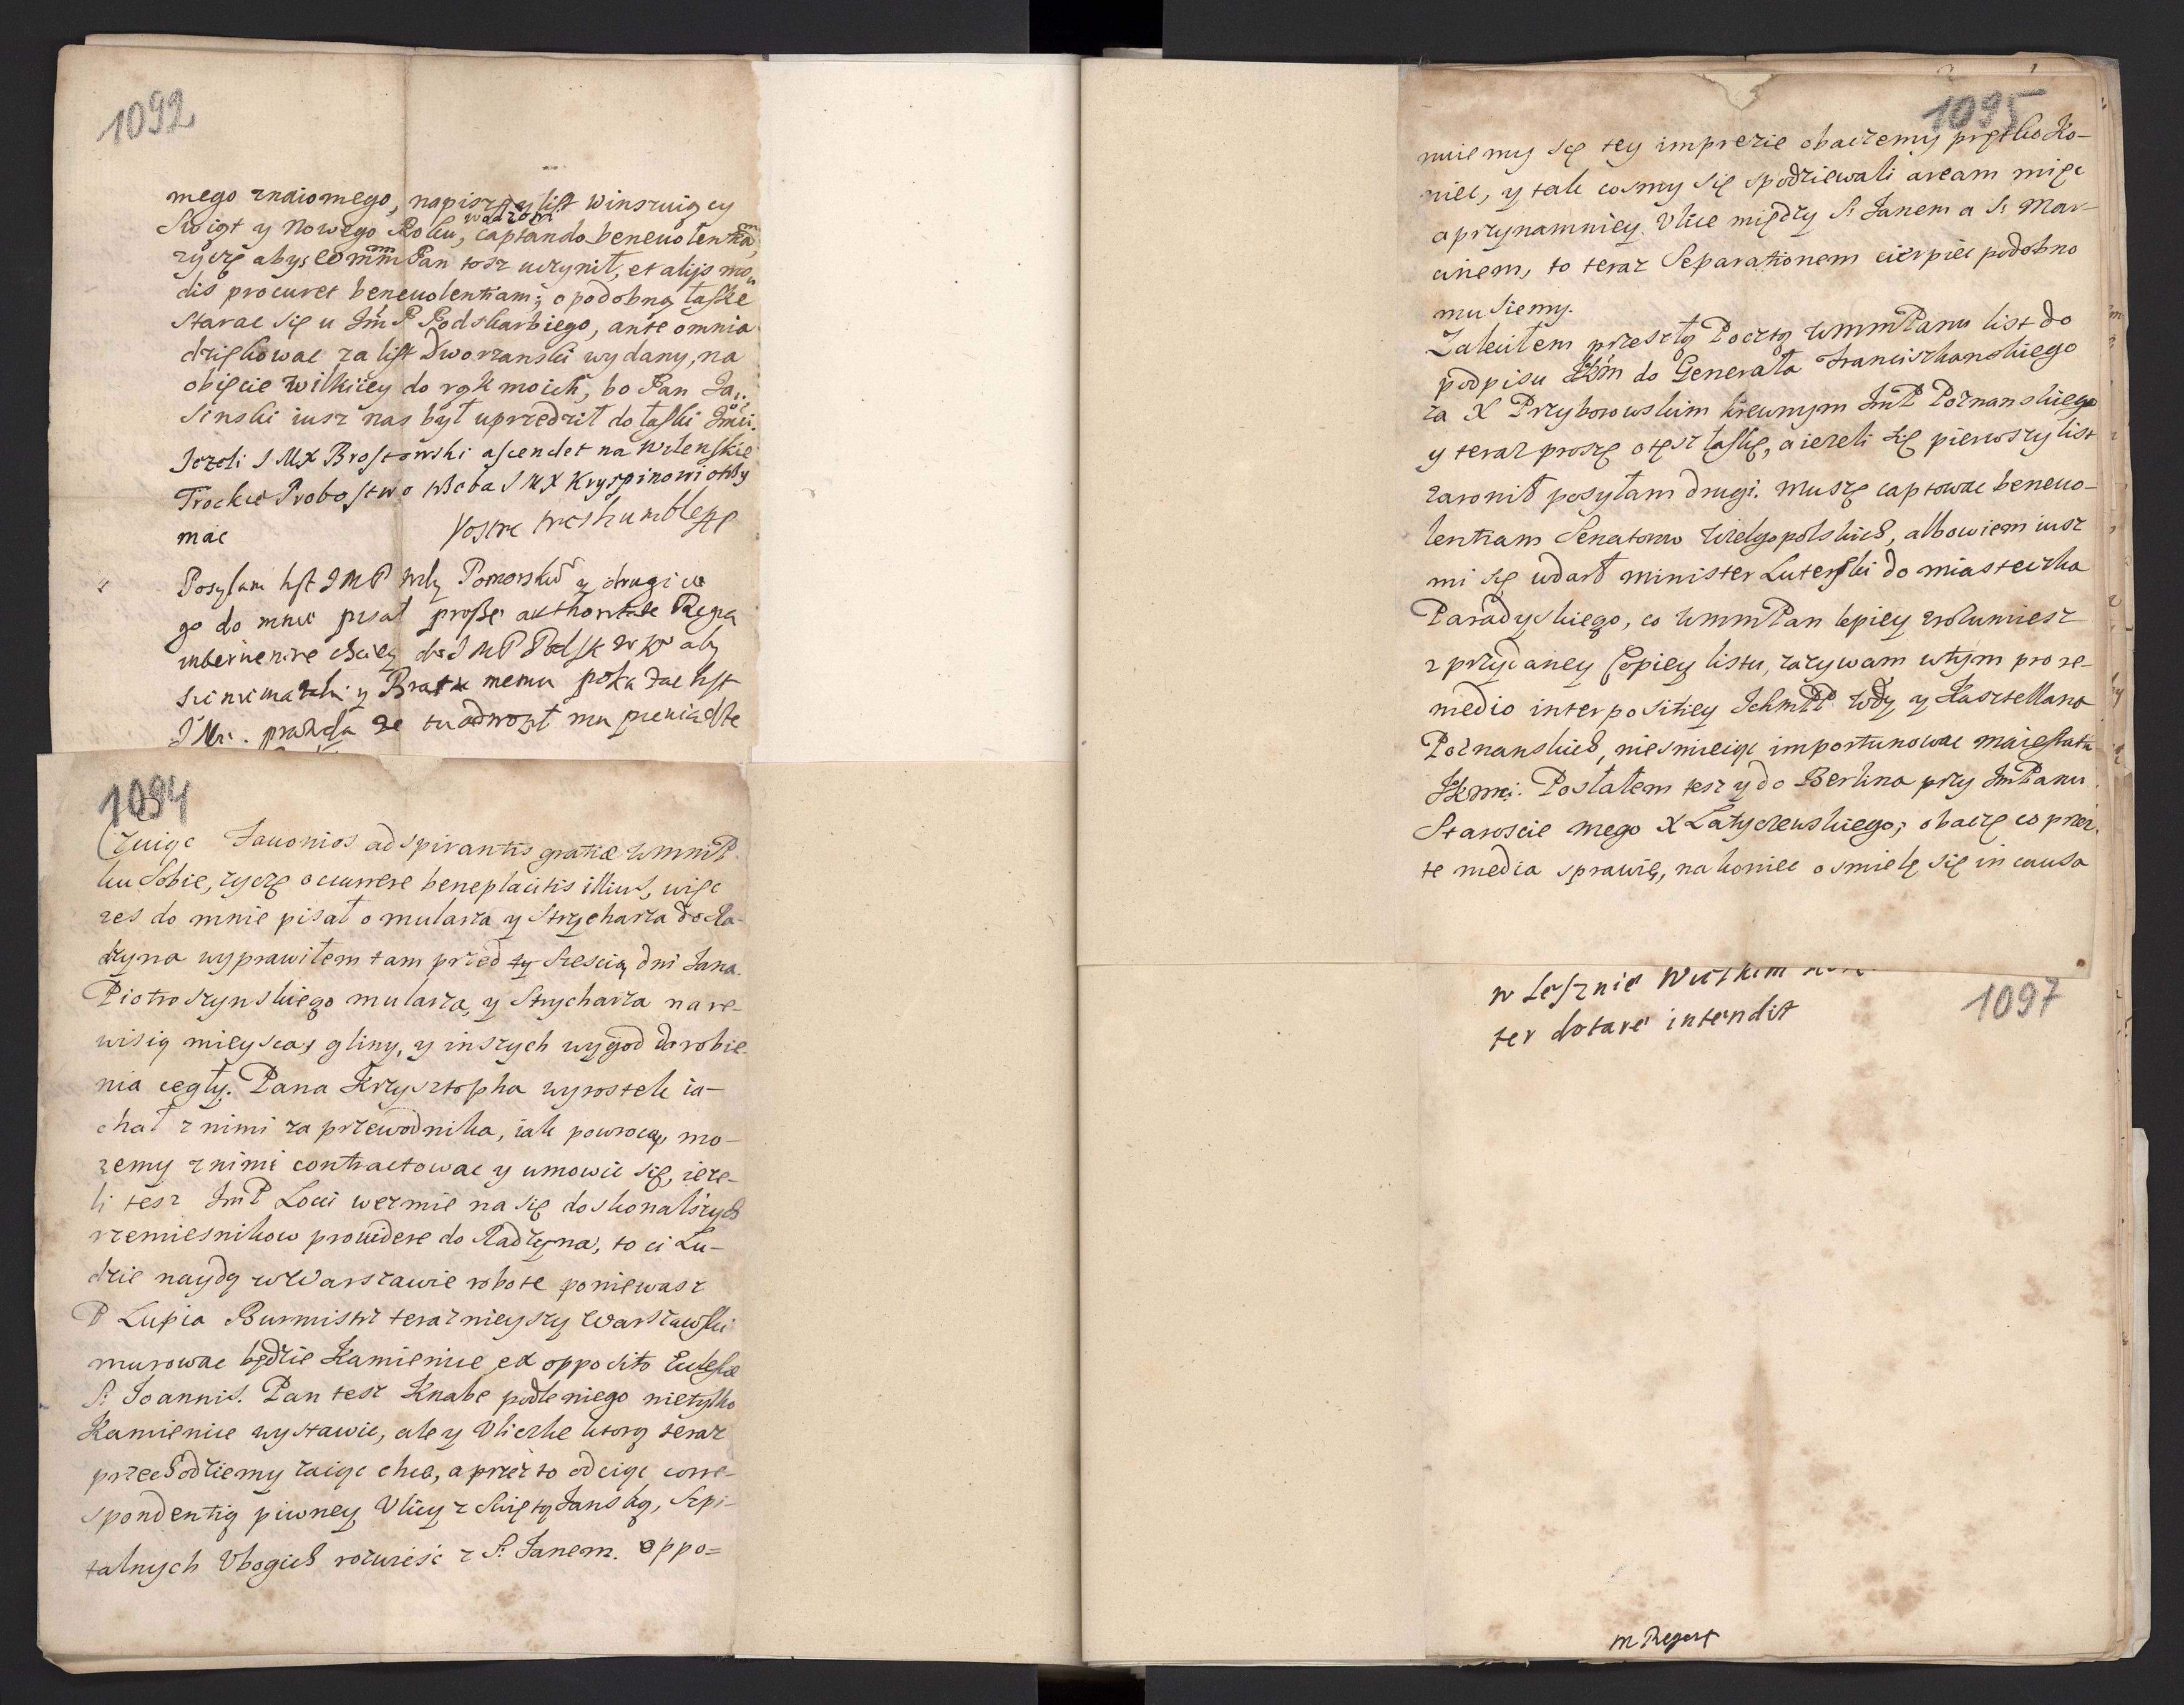 1092
mego znaiomego, napiszę y list winszuiący
Swiąt y Nowego Roku, captando beneuolentiam
życzę abys WMM Pan tosz uczynił, et alijs mo-
dis procuret beneuolentiam; o podobną łaskę
starac się u Jm P Podskarbiego, ante omnia
dziękowac za list Dworzanski wydany, na
obięcie Wilkiiey do rąk moich, bo Pan Ja-
sinski iusz nas był uprzedził do łaski Jmci.
Jezeli J MX Brostowski ascendet na Wilenskie
Trockie Probostwo trzeba J MX Kryszpinowi
mac Vostre treshumble
Posyłam list J M P Wdy Pomorski y drugi
go do mnie pisał proszę authoritate Regia
interuenire chciey do J M P Podsk aby
y Bratu memu list
J Mci. prawda ze mu pieniądze
1094
Czuiąc Fauonios adspirantis gratiæ WmmP.
ku sobie, życzę occurrere beneplacitis illius, więc
zes do mnie pisał o mularza y Strycharza do Ra-
dzyna wyprawiłem tam przed sescią dni Jana
Piotroszynskiego mularza, y Strycharza na re-
wisią mieysca, gliny, y inszych wygod do robie-
nia cegły. Pana Krzysztopha wyrostek ia-
chał z nimi za przewodnika, iak powrocą, mo-
zemy z nimi contractowac y umowic się, ieze-
li tesz JmP Locci wezmie na się doskonalszych
rzemiesnikow prouidere do Radzyna, to ci Lu-
dzie naydą w Warszawie robote poniewasz
P Lupia Burmistrz teraznieyszy Warszawski
murowac będzie Kamienice ex opposito Ecclesiæ
S. Joannis. Pan tesz Knabe podle niego nietylko
Kamienice wystawic, ale y Uliczke ktorą teraz
przechodziemy zaiąc chce, a przez to odciąc corre-
spondentią piwney Ulicy z Swięto Janską, Szpi-
talnych Ubogich rozwiesc z S. Janem. oppo=
1095
nuiemy się tey imprezie obaczemy prętko Ko-
niec, y tak cosmy się spodziewali aream miec
a przynamniey Ulice między S. Janem a S. Mar-
cinem, to teraz Separationem cierpiec podobno
musiemy.
Zaleciłem przeszłą Pocztą WmmPanu list do
podpisu do Generała Franciszkanskiego
za X Przyborowskim krewnym JmP Poznanskiego
y teraz proszę o tęsz łaskę, a iezeli się pierwszy list
zaronił posyłam drugi. Muszę captowac beneuo-
lentiam Senatorow Wielgopolskich, albowiem iusz
mi się wdarł minister Luterski do miasteczka
Paradyskiego, co WmmPan lepiey zrozumiesz
z przydaney Copiey listu, zazywam w tym pro re-
medio interpositiey Jchm PP Wdy y Kasztellana
Poznanskich, niesmieiąc importunowac maiestatu
JKmci. Posłałem tesz y do Berlina przy Jm Panu
Staroscie mego X Latyczewskiego; obaczę co przez
te media sprawię, na koniec osmielę się in causa
w Lesznie
ter dotare intendit
1097
m Regest